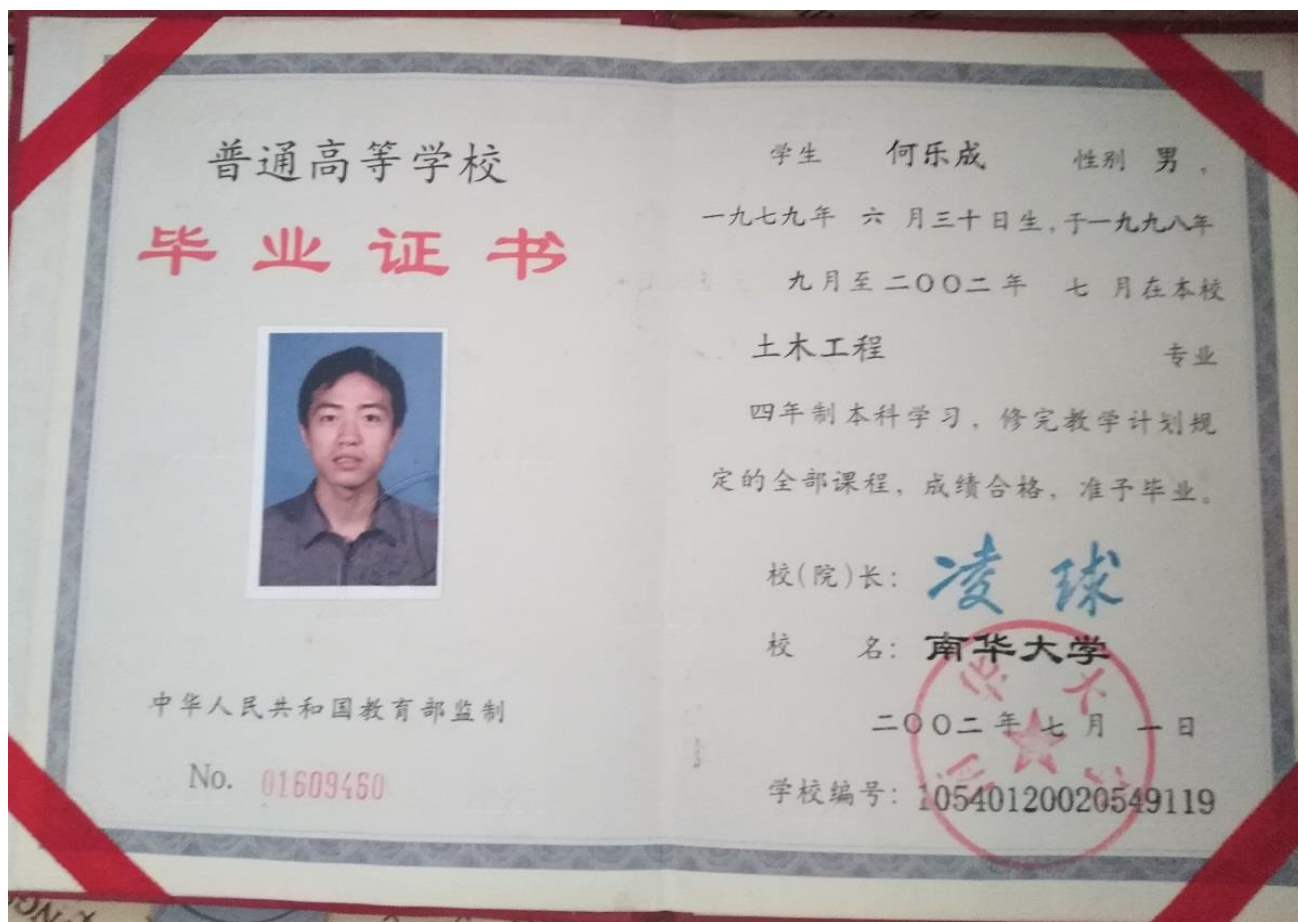 普通高等学校
毕业证书
中华人民共和国教育部监制
No. 01609460
学生 何乐成 性别 男，
一九七九年 六 月三十日生，于一九九八年
九月至二〇〇二年 七 月在本校
土木工程 专业
四年制本科学习，修完教学计划规
定的全部课程，成绩合格，准予毕业。
校(院)长： 凌球
校 名： 南华大学
二〇〇二年 七 月 一 日
学校编号：10540120020549119